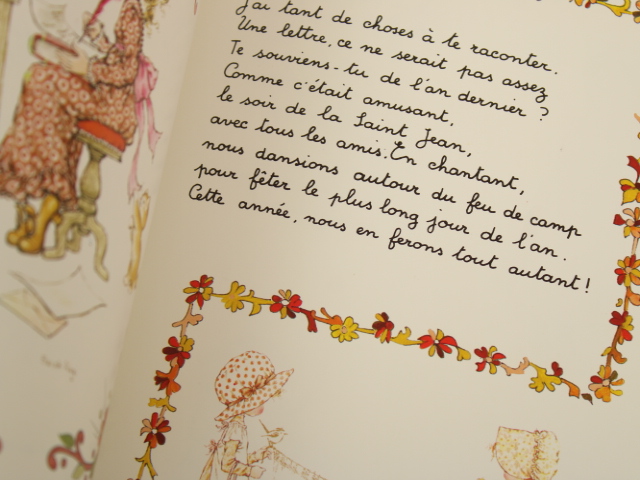 J'ai tant de choses à te raconter.
Une lettre, ce ne serait pas assez
Te souviens-tu de l'an dernier ?
Comme c'était amusant,
le soir de la Saint Jean,
avec tous les amis. En chantant,
nous dansions autour du feu de camp
pour fêter le plus long jour de l'an.
Cette année, nous en ferons tout autant !